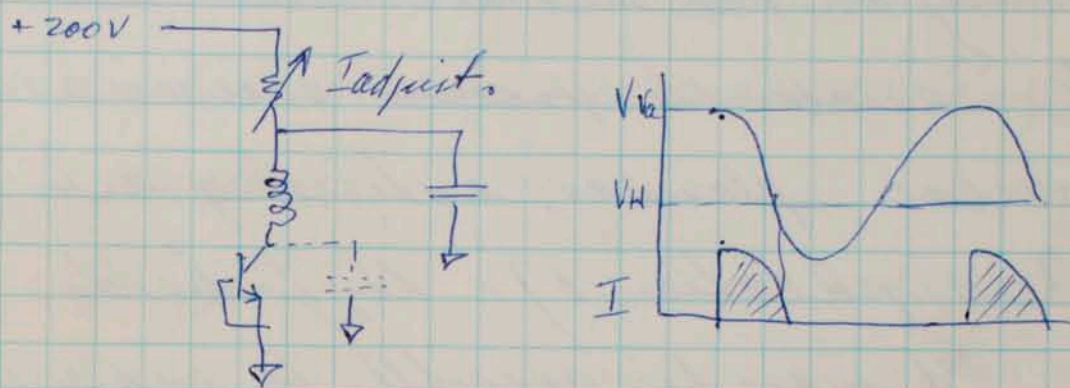 + 200V
Iadjust.
VVa
VH
I